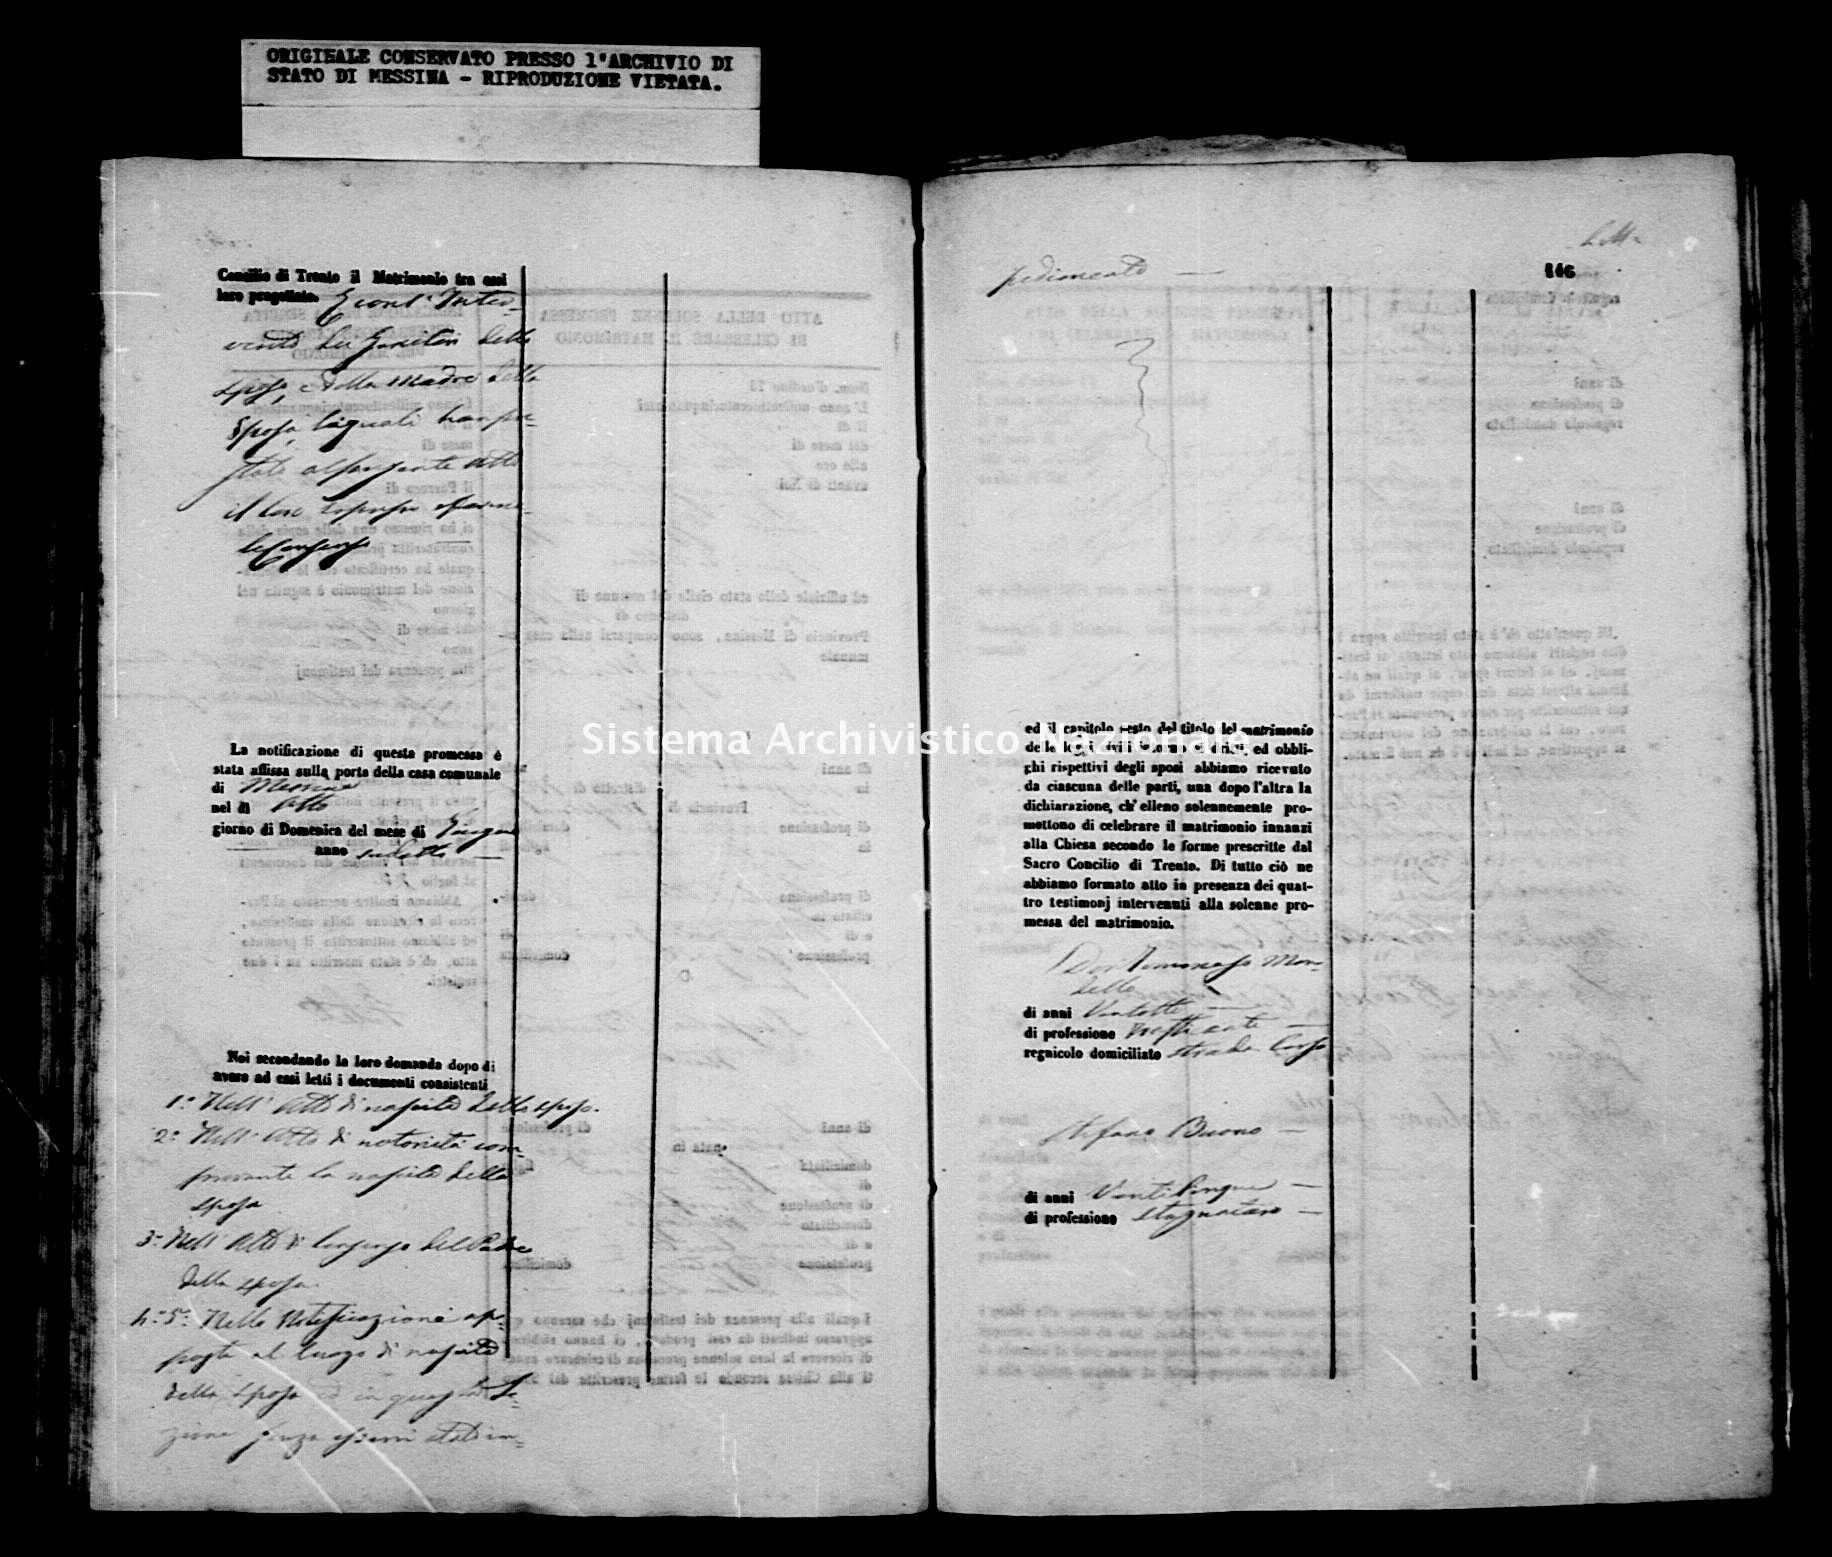 ORIGINALE CONSERVATO PRESSO l'ARCHIVIO DI
STATO DI MESSINA - RIPRODUZIONE VIETATA.
Concilio di Trento il Matrimonio tra essi
loro progettato. Econ l' Inter-
vento dei Genitori dello
sposo, e della Madre della
sposa, li quali han pre-
stato al presente atto
il loro espresso e formale
Consenso
La notificazione di questa promessa è
stata affissa sulla porta della casa comunale
di Messina
nel dì Otto
giorno di Domenica del mese di Giugno
anno sudetto
Noi secondando la loro domanda dopo di
avere ad essi letti i documenti consistenti
1º Nell' Atto di nascita dello sposo.
2º Nell' Atto di notorietà com-
provante la nascita della
sposa
3º Nell' Atto di Consenso del Padre
della sposa.
4º 5º Nelle Notificazioni ap-
poste al luogo di nascita
della sposa ed in questa Se-
zione senza esservi stato im-
pedimento
146
ed il capitolo sesto del titolo del matrimonio
delle leggi civili intorno ai diritti, ed obbli-
ghi rispettivi degli sposi abbiamo ricevuto
da ciascuna delle parti, una dopo l'altra la
dichiarazione, ch' elleno solennemente pro-
mettono di celebrare il matrimonio innanzi
alla Chiesa secondo le forme prescritte dal
Sacro Concilio di Trento. Di tutto ciò ne
abbiamo formato atto in presenza dei quat-
tro testimonj intervenuti alla solenne pro-
messa del matrimonio.
Don Tommaso Mon-
dello
di anni Ventotto
di professione
regnicolo domiciliato strada Corso
Stefano Buono
di anni Venticinque
di professione stagnataro
Sistema Archivistico Nazionale